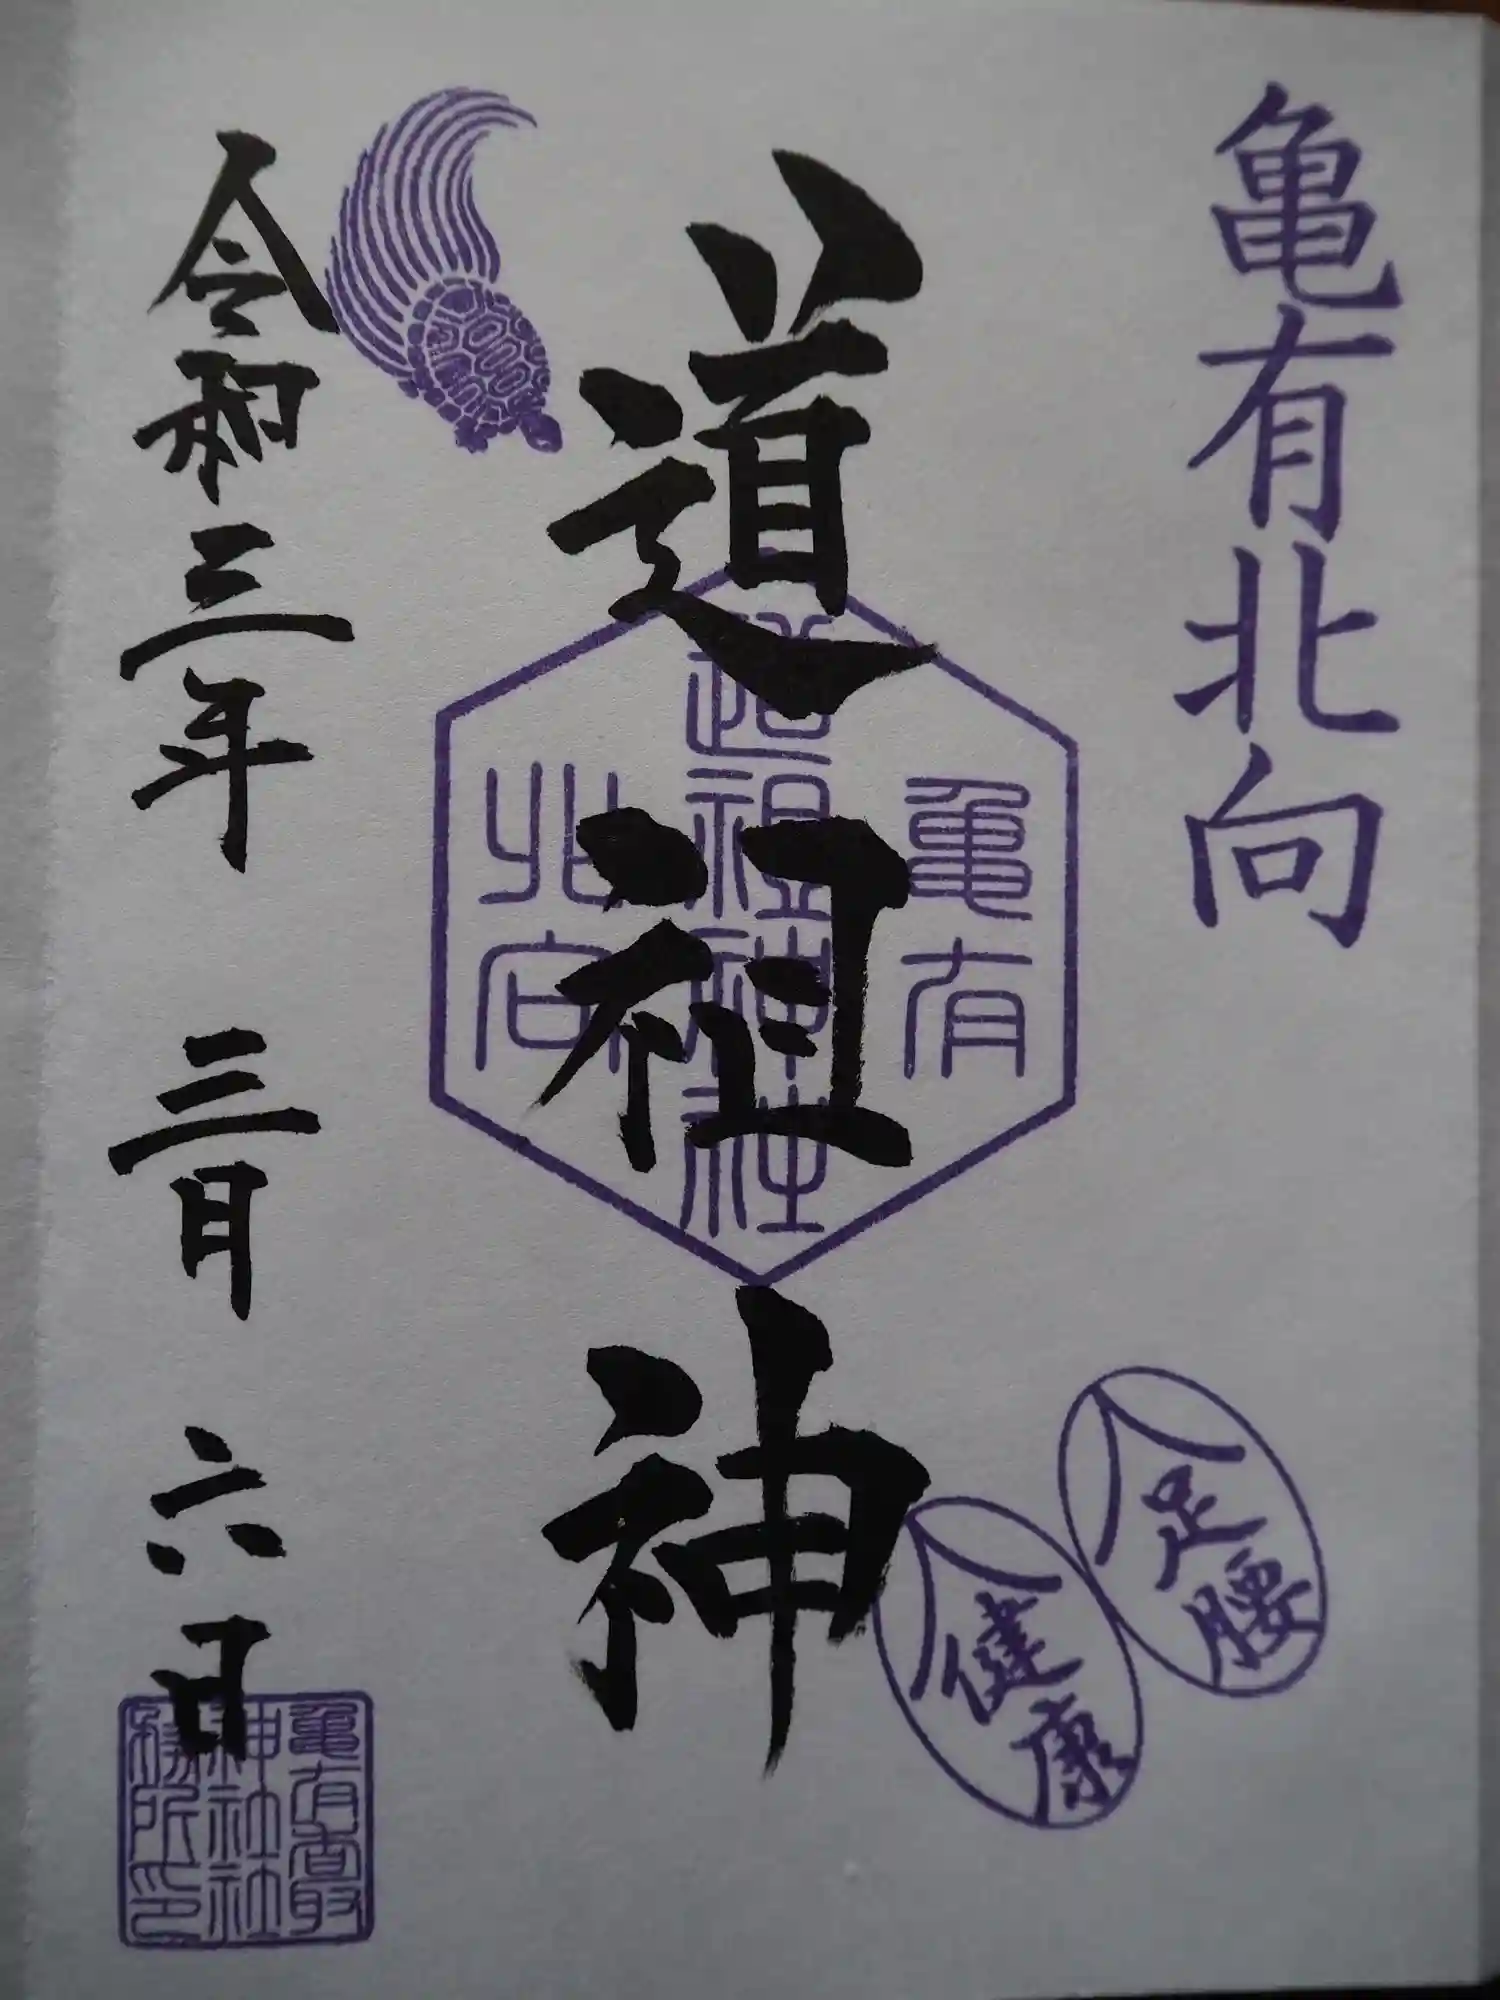 亀有北向
道祖神
令和三年 三月 六日
亀有
道祖神社
北向
足腰
健康
亀有香取
神社社
務所印